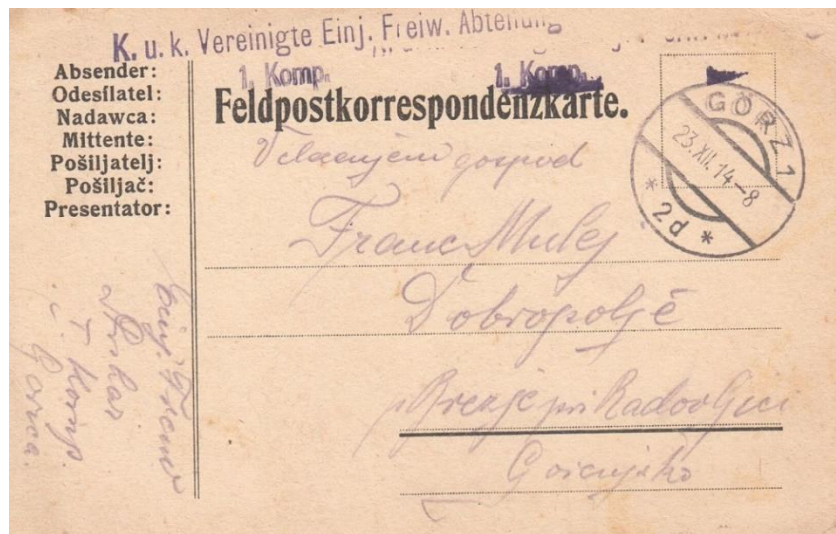 K. u. k. Vereinigte Einj. Freiw. Abteilung
1. Komp. 1. Komp.
Absender:
Odesílatel:
Nadawca:
Mittente:
Pošiljatelj:
Pošiljač:
Presentator:
Feldpostkorrespondenzkarte.
GÖRZ 1
23.XII.14-8
* 2d *
gospod
Franc Mulej
Dobropolje
Brezje pri Radovljici
Gorenjsko
Komp.
Gorica.